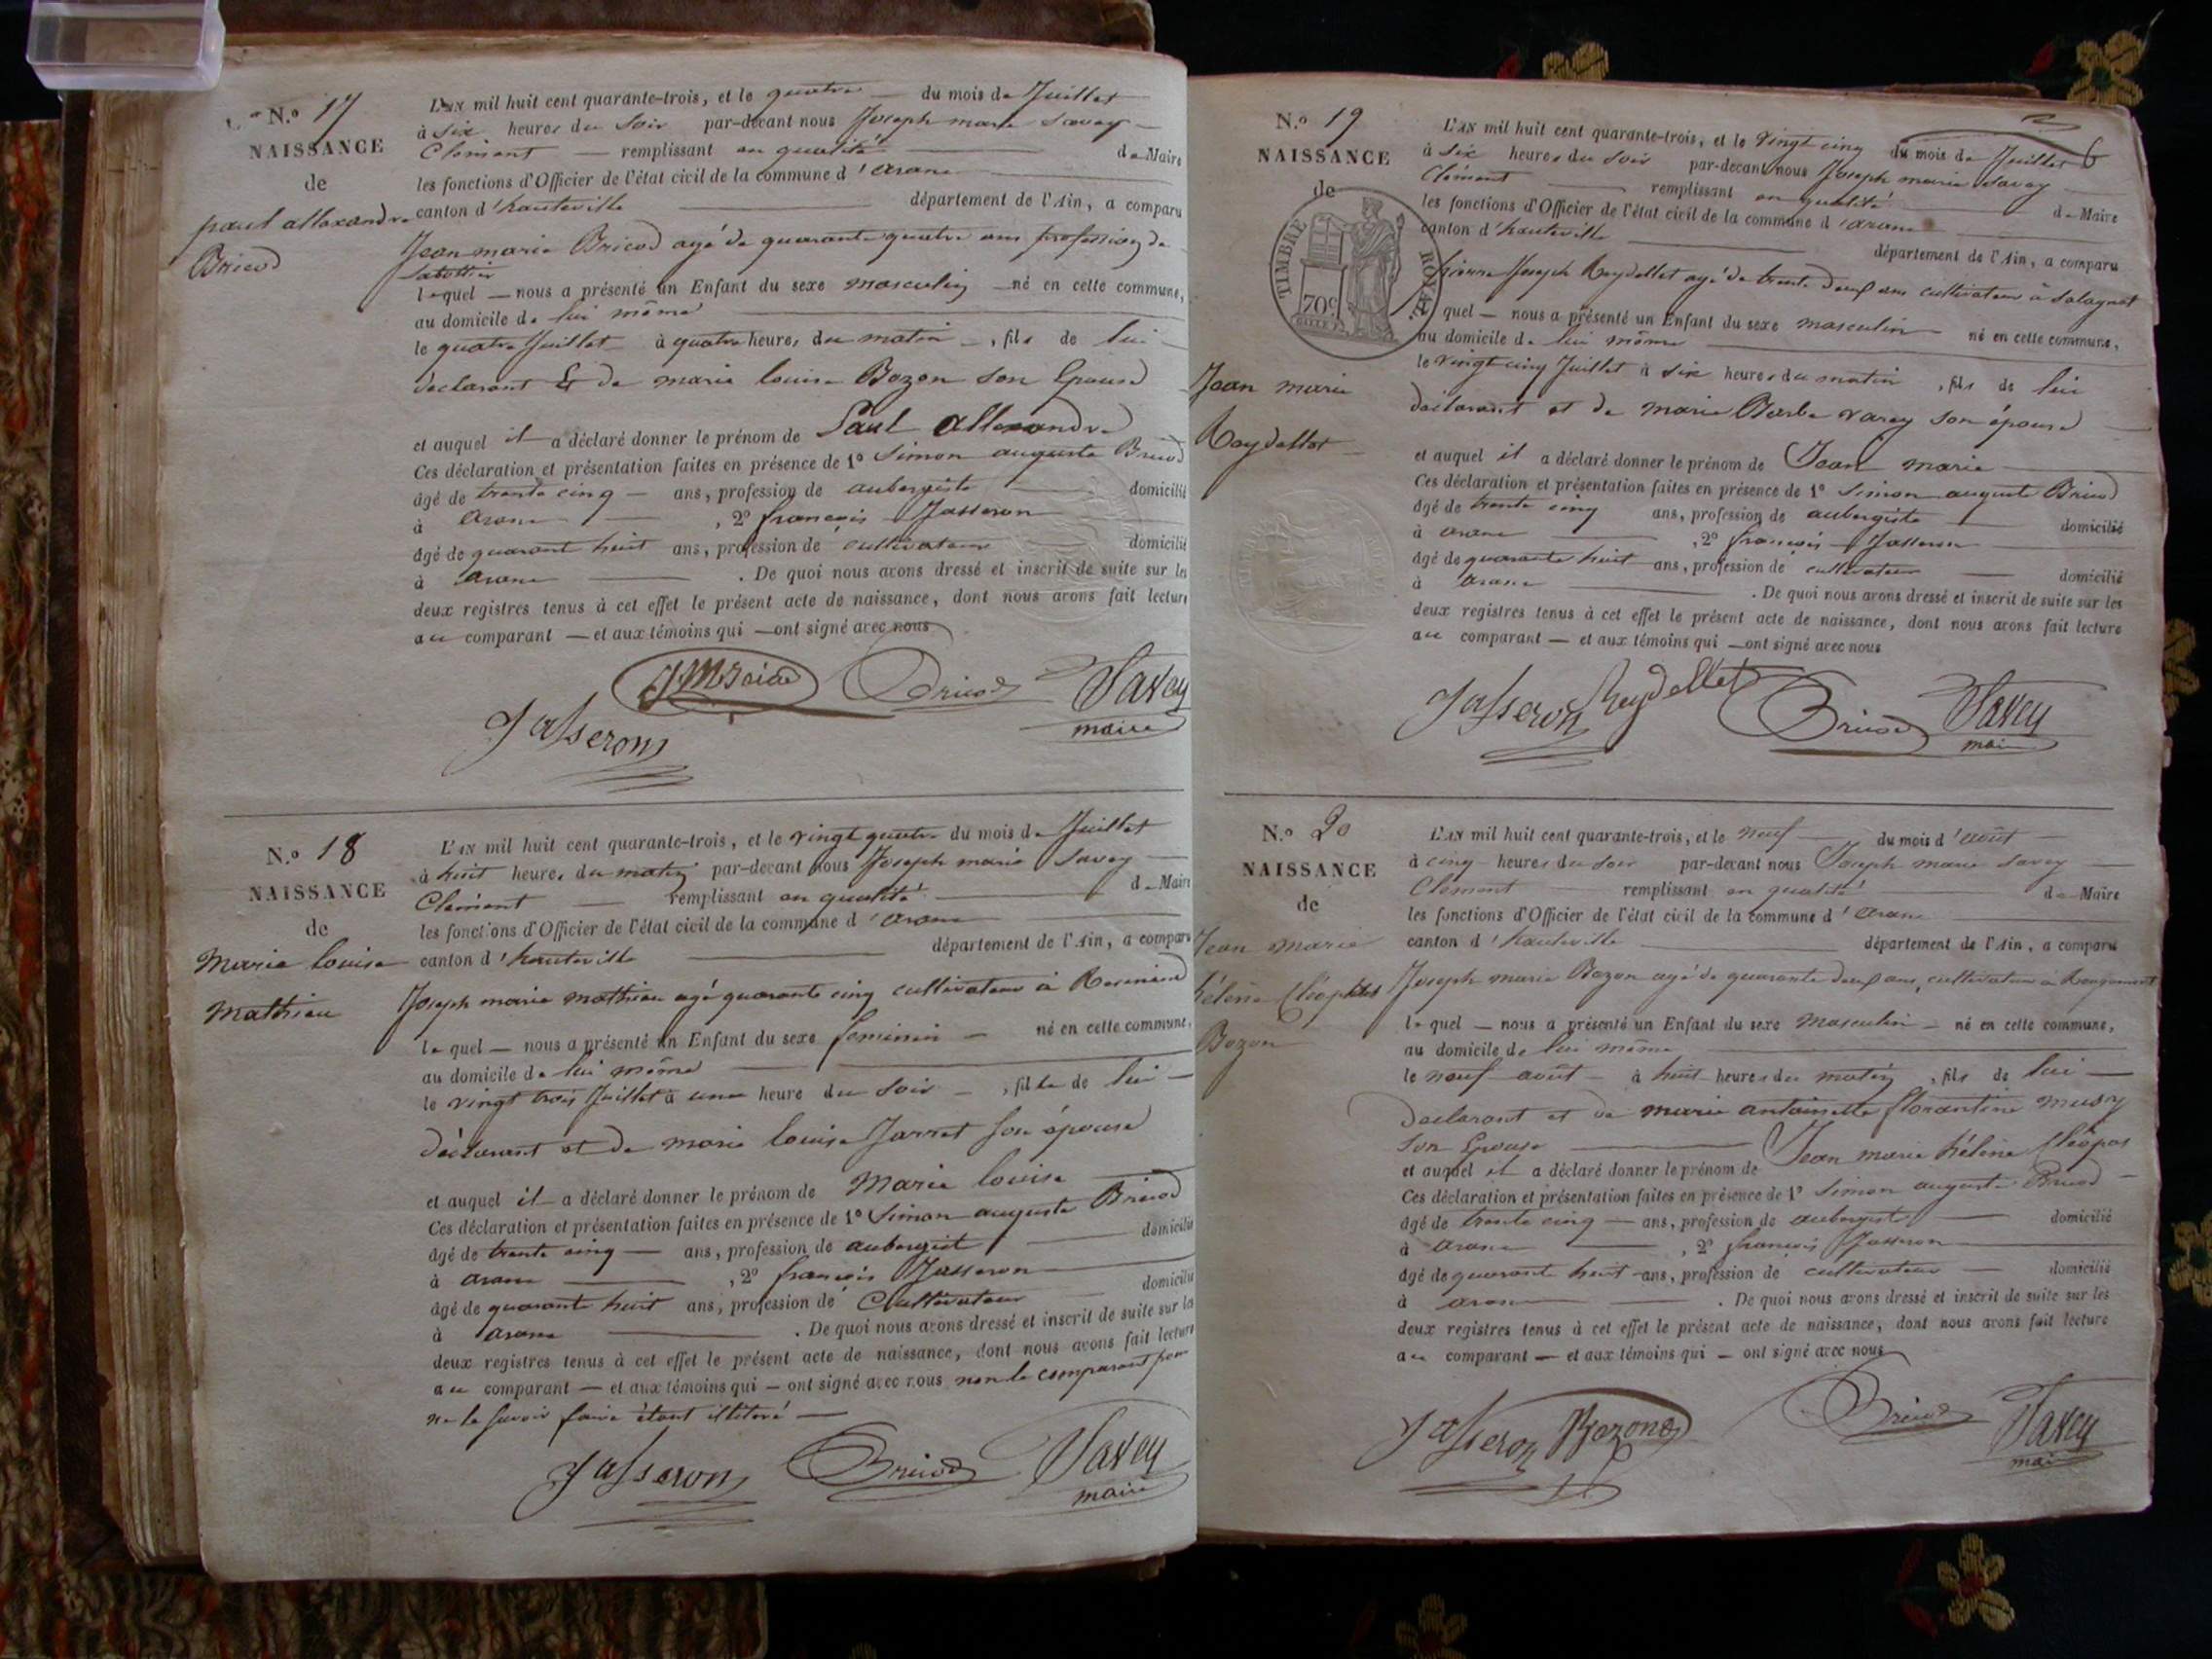 N.º 17
NAISSANCE
de
paul allexandre
Bricod
L'AN mil huit cent quarante-trois, et le quatre du mois de Juillet
à six heures du soir par-devant nous Joseph marie Savey
Clément remplissant en qualité de Maire
les fonctions d'Officier de l'état civil de la commune d'arane
canton d'hauteville département de l'Ain, a comparu
Jean marie Bricod agé de quarante quatre ans profession de
Sabottier
lequel nous a présenté un Enfant du sexe masculin né en cette commune,
au domicile de lui même
le quatre Juillet à quatre heures du matin, fils de lui
déclarant Et de marie louise Bozon son Epouse
et auquel il a déclaré donner le prénom de Paul allexandre
Ces déclaration et présentation faites en présence de 1º Simon auguste Bricod
âgé de trente cinq ans, profession de aubergiste domicilié
à arane, 2º françois Jasseron
âgé de quarant huit ans, profession de cultivateur domicilié
à arane. De quoi nous avons dressé et inscrit de suite sur les
deux registres tenus à cet effet le présent acte de naissance, dont nous avons fait lecture
au comparant et aux témoins qui ont signé avec nous
Bricod Savey
Jasseron maire
N.º 18
NAISSANCE
de
Marie louise
Mathieu
L'AN mil huit cent quarante-trois, et le vingt quatre du mois de Juillet
à huit heures du matin par-devant nous Joseph marie Savey
Clément remplissant en qualité de Maire
les fonctions d'Officier de l'état civil de la commune d'arane
canton d'hauteville département de l'Ain, a comparu
Joseph marie mathieu agé quarante cinq cultivateur à
lequel nous a présenté un Enfant du sexe feminin né en cette commune,
au domicile de lui même
le vingt trois Juillet à une heure du soir, fille de lui
déclarant et de marie louise Jarret son épouse
et auquel il a déclaré donner le prénom de Marie louise
Ces déclaration et présentation faites en présence de 1º Simon auguste Bricod
âgé de trente cinq ans, profession de aubergiste domicilié
à arane, 2º françois Jasseron
âgé de quarante huit ans, profession de Cultivateur domicilié
à arane. De quoi nous avons dressé et inscrit de suite sur les
deux registres tenus à cet effet le présent acte de naissance, dont nous avons fait lecture
au comparant et aux témoins qui ont signé avec nous non le comparant pour
ne le savoir faire étant illitéré
Jasseron Bricod Savey
maire
N.º 19
NAISSANCE
de
TIMBRE ROYAL
70c
Jean marie
Reydellet
6
L'AN mil huit cent quarante-trois, et le vingt cinq du mois de Juillet
à six heures du soir par-devant nous Joseph marie Savey
Clément remplissant en qualité de Maire
les fonctions d'Officier de l'état civil de la commune d'arane
canton d'hauteville département de l'Ain, a comparu
pierre Joseph Reydellet agé de trente deux ans cultivateur à Salagnat
quel nous a présenté un Enfant du sexe masculin né en cette commune,
au domicile de lui même
le vingt cinq Juillet à six heures du matin, fils de lui
déclarant et de marie Barbe varey son épouse
et auquel il a déclaré donner le prénom de Jean marie
Ces déclaration et présentation faites en présence de 1º Simon auguste Bricod
âgé de trente cinq ans, profession de aubergiste domicilié
à arane, 2º françois Jasseron
âgé de quarante huit ans, profession de cultivateur domicilié
à arane. De quoi nous avons dressé et inscrit de suite sur les
deux registres tenus à cet effet le présent acte de naissance, dont nous avons fait lecture
au comparant et aux témoins qui ont signé avec nous
Jasseron Reydellet Bricod Savey
maire
N.º 20
NAISSANCE
de
Jean marie
hélène Cléophas
Bozon
L'AN mil huit cent quarante-trois, et le neuf du mois d'août
à cinq heures du soir par-devant nous Joseph marie Savey
Clément remplissant en qualité de Maire
les fonctions d'Officier de l'état civil de la commune d'arane
canton d'hauteville département de l'Ain, a comparu
Joseph marie Bozon agé de quarante deux ans, cultivateur à Rougemont
lequel nous a présenté un Enfant du sexe masculin né en cette commune,
au domicile de lui même
le neuf août à huit heures du matin, fils de lui
declarant et de marie antoinette florantine musy
son Epouse
et auquel il a déclaré donner le prénom de Jean marie hélène Cléopas
Ces déclaration et présentation faites en présence de 1º Simon auguste Bricod
âgé de trente cinq ans, profession de aubergiste domicilié
à arane, 2º françois Jasseron
âgé de quarante huit ans, profession de cultivateur domicilié
à arane. De quoi nous avons dressé et inscrit de suite sur les
deux registres tenus à cet effet le présent acte de naissance, dont nous avons fait lecture
au comparant et aux témoins qui ont signé avec nous
Jasseron Bozon Bricod Savey
maire